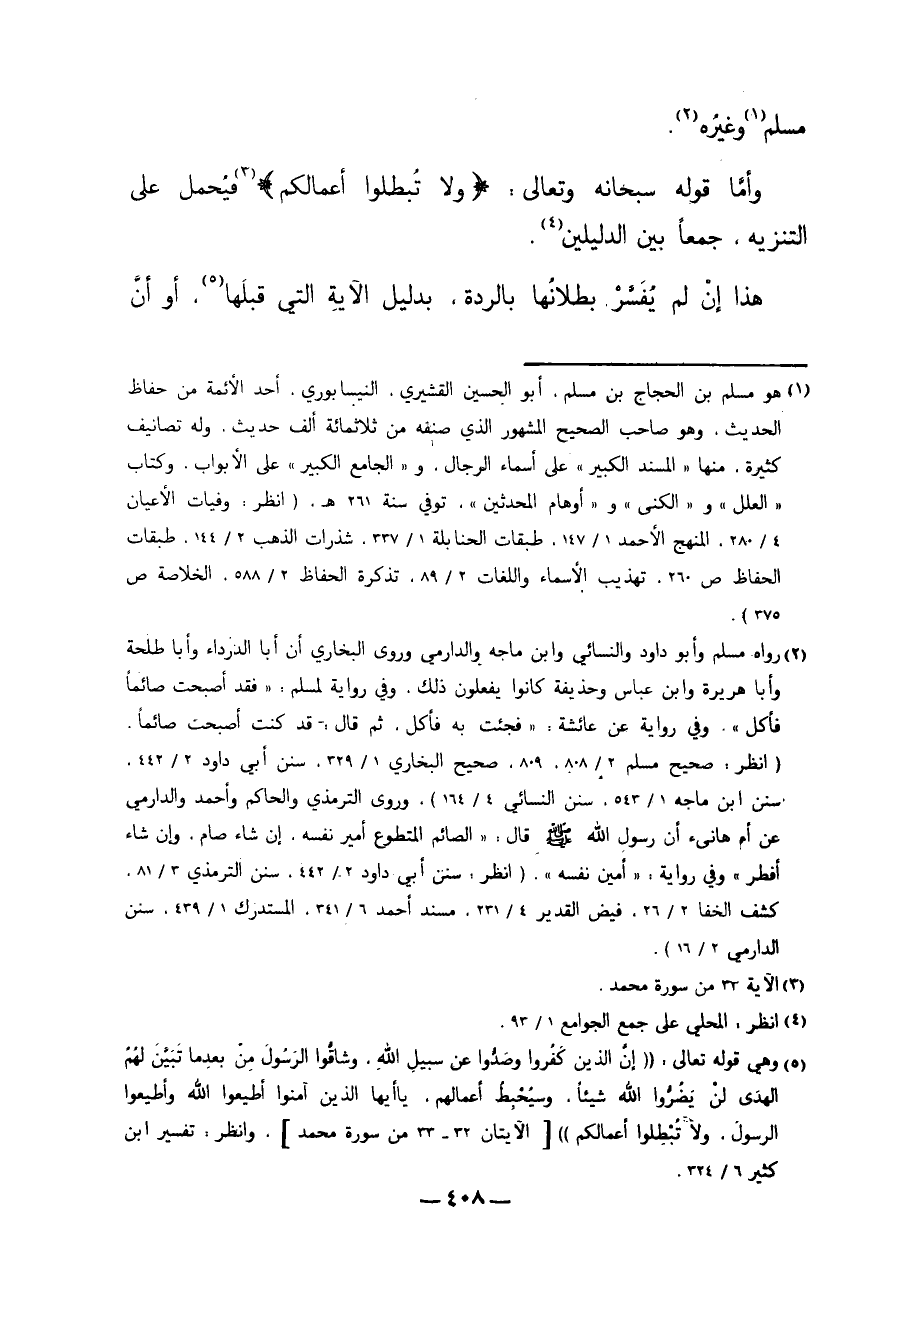 مسلم(١) وغيرُه(٢).
وأمَّا قوله سبحانه وتعالى : ﴿ ولا تُبطلوا أعمالكم ﴾(٣) فيُحمل على
التنزيه ، جمعاً بين الدليلين(٤).
هذا إنْ لم يُفَسَّرْ بطلانُها بالردة ، بدليل الآيةِ التي قبلَها(٥)، أو أنَّ
(١) هو مسلم بن الحجاج بن مسلم ، أبو الحسين القشيري ، النيسابوري ، أحد الأئمة من حفاظ
الحديث ، وهو صاحب الصحيح المشهور الذي صنفه من ثلاثمائة ألف حديث ، وله تصانيف
كثيرة ، منها « المسند الكبير » على أسماء الرجال ، و « الجامع الكبير » على الأبواب ، وكتاب
« العلل » و « الكنى » و « أوهام المحدثين » ، توفي سنة ٢٦١ هـ . ( انظر : وفيات الأعيان
٤ / ٢٨٠ ، المنهج الأحمد ١ / ١٤٧ ، طبقات الحنابلة ١ / ٣٣٧ ، شذرات الذهب ٢ / ١٤٤ ، طبقات
الحفاظ ص ٢٦٠ ، تهذيب الأسماء واللغات ٢ / ٨٩ ، تذكرة الحفاظ ٢ / ٥٨٨ ، الخلاصة ص
٣٧٥ ) .
(٢) رواه مسلم وأبو داود والنسائي وابن ماجه والدارمي وروى البخاري أن أبا الدرداء وأبا طلحة
وأبا هريرة وابن عباس وحذيفة كانوا يفعلون ذلك ، وفي رواية لمسلم : « فقد أصبحت صائماً
فأكل » . وفي رواية عن عائشة : « فجئت به فأكل ، ثم قال :- قد كنت أصبحت صائماً .
( انظر : صحيح مسلم ٢ / ٨٠٨ ، ٨٠٩ ، صحيح البخاري ١ / ٣٢٩ ، سنن أبي داود ٢ / ٤٤٢ ،
سنن ابن ماجه ١ / ٥٤٣ ، سنن النسائي ٤ / ١٦٤ ) ، وروى الترمذي والحاكم وأحمد والدارمي
عن أم هانىء أن رسول الله ﷺ قال : « الصائم المتطوع أمير نفسه ، إن شاء صام ، وإن شاء
أفطر » وفي رواية : « أمين نفسه » . ( انظر : سنن أبي داود ٢ / ٤٤٢ ، سنن الترمذي ٣ / ٨١ ،
كشف الخفا ٢ / ٢٦ ، فيض القدير ٤ / ٢٣١ ، مسند أحمد ٦ / ٣٤١ ، المستدرك ١ / ٤٣٩ ، سنن
الدارمي ٢ / ١٦ ) .
(٣) الآية ٣٣ من سورة محمد .
(٤) انظر : المحلي على جمع الجوامع ١ / ٩٣ .
(٥) وهي قوله تعالى : (( إنَّ الذين كَفَروا وصَدُّوا عن سبيلِ الله ، وشاقُّوا الرَسُولَ مِنْ بعدِما تَبَيَّنَ لهُمُ
الهدَى لنْ يَضُرُّوا اللهَ شيئاً ، وسيُحْبِطُ أعمالهم ، ياأيها الذين آمنوا أطيعوا اللهَ وأطيعوا
الرسولَ ، ولا تُبْطِلوا أعمالكم )) [ الآيتان ٣٢ - ٣٣ من سورة محمد ] ، وانظر : تفسير ابن
كثير ٦ / ٣٢٤ .
— ٤٠٨ —